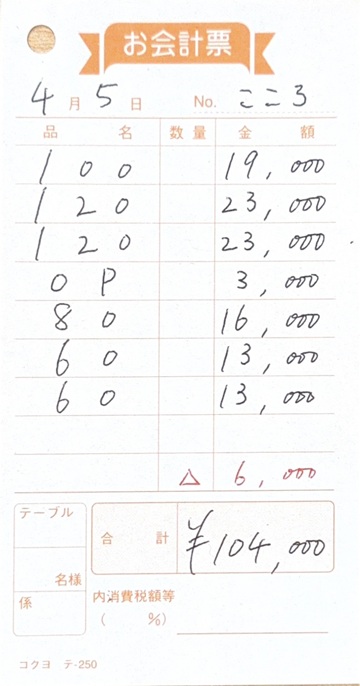 お会計票
4月5日 No. こころ
品名 数量 金額
100 19,000
120 23,000
120 23,000
OP 3,000
80 16,000
60 13,000
60 13,000
△ 6,000
テーブル
合計 ¥104,000
名様
係
内消費税額等
( %)
コクヨ テ-250